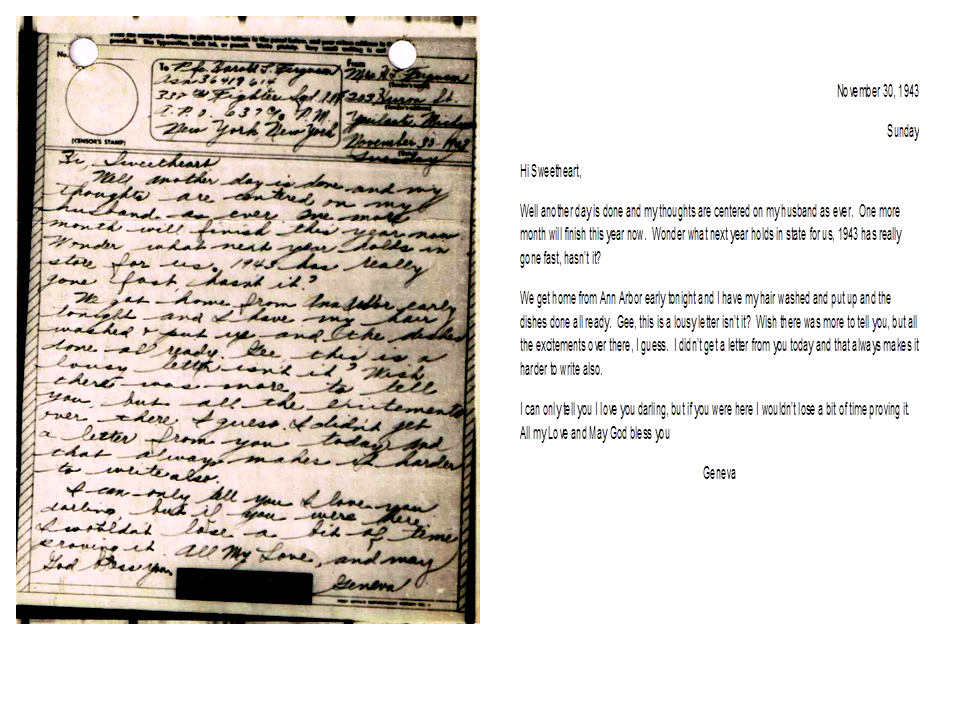 Print the complete address in plain block letters in the panel below, and your return address in the space
provided. Use typewriter, dark ink, or pencil. Write plainly. Very small writing is not
No.
(CENSOR'S STAMP)
To Pfc. Harold L. Ferguson
Asn 36419614
337th Fighter Sqd.
A.P.O. 637 % P.M.
New York New York
From
Mrs H. L. Ferguson
(Sender's name)
203 Huron St.
(Sender's address)
Ypsilanti Michigan
November 30-1943
(Date)
Sunday
Hi, Sweetheart
Well another day is done and my
thoughts are centered on my
husband as ever. One more
month will finish this year now
Wonder what next year holds in
store for us, 1943 has really
gone fast, hasn't it?
We got home from Ann Arbor early
tonight and I have my hair
washed & put up and the dishes
done all ready. Gee this is a
lousy letter isn't it? Wish
there was more to tell
you, but all the excitements
over there, I guess. I didn't get
a letter from you today and
that always makes it harder
to write also.
I can only tell you I love you
darling, but if you were here
I wouldn't lose a bit of time
proving it. All My Love, and may
God bless you.
Geneva
November 30, 1943
Sunday
Hi Sweetheart,
Well another day is done and my thoughts are centered on my husband as ever. One more
month will finish this year now. Wonder what next year holds in state for us, 1943 has really
gone fast, hasn't it?
We get home from Ann Arbor early tonight and I have my hair washed and put up and the
dishes done all ready. Gee, this is a lousy letter isn't it? Wish there was more to tell you, but all
the excitements over there, I guess. I didn't get a letter from you today and that always makes it
harder to write also.
I can only tell you I love you darling, but if you were here I wouldn't lose a bit of time proving it.
All my Love and May God bless you
Geneva